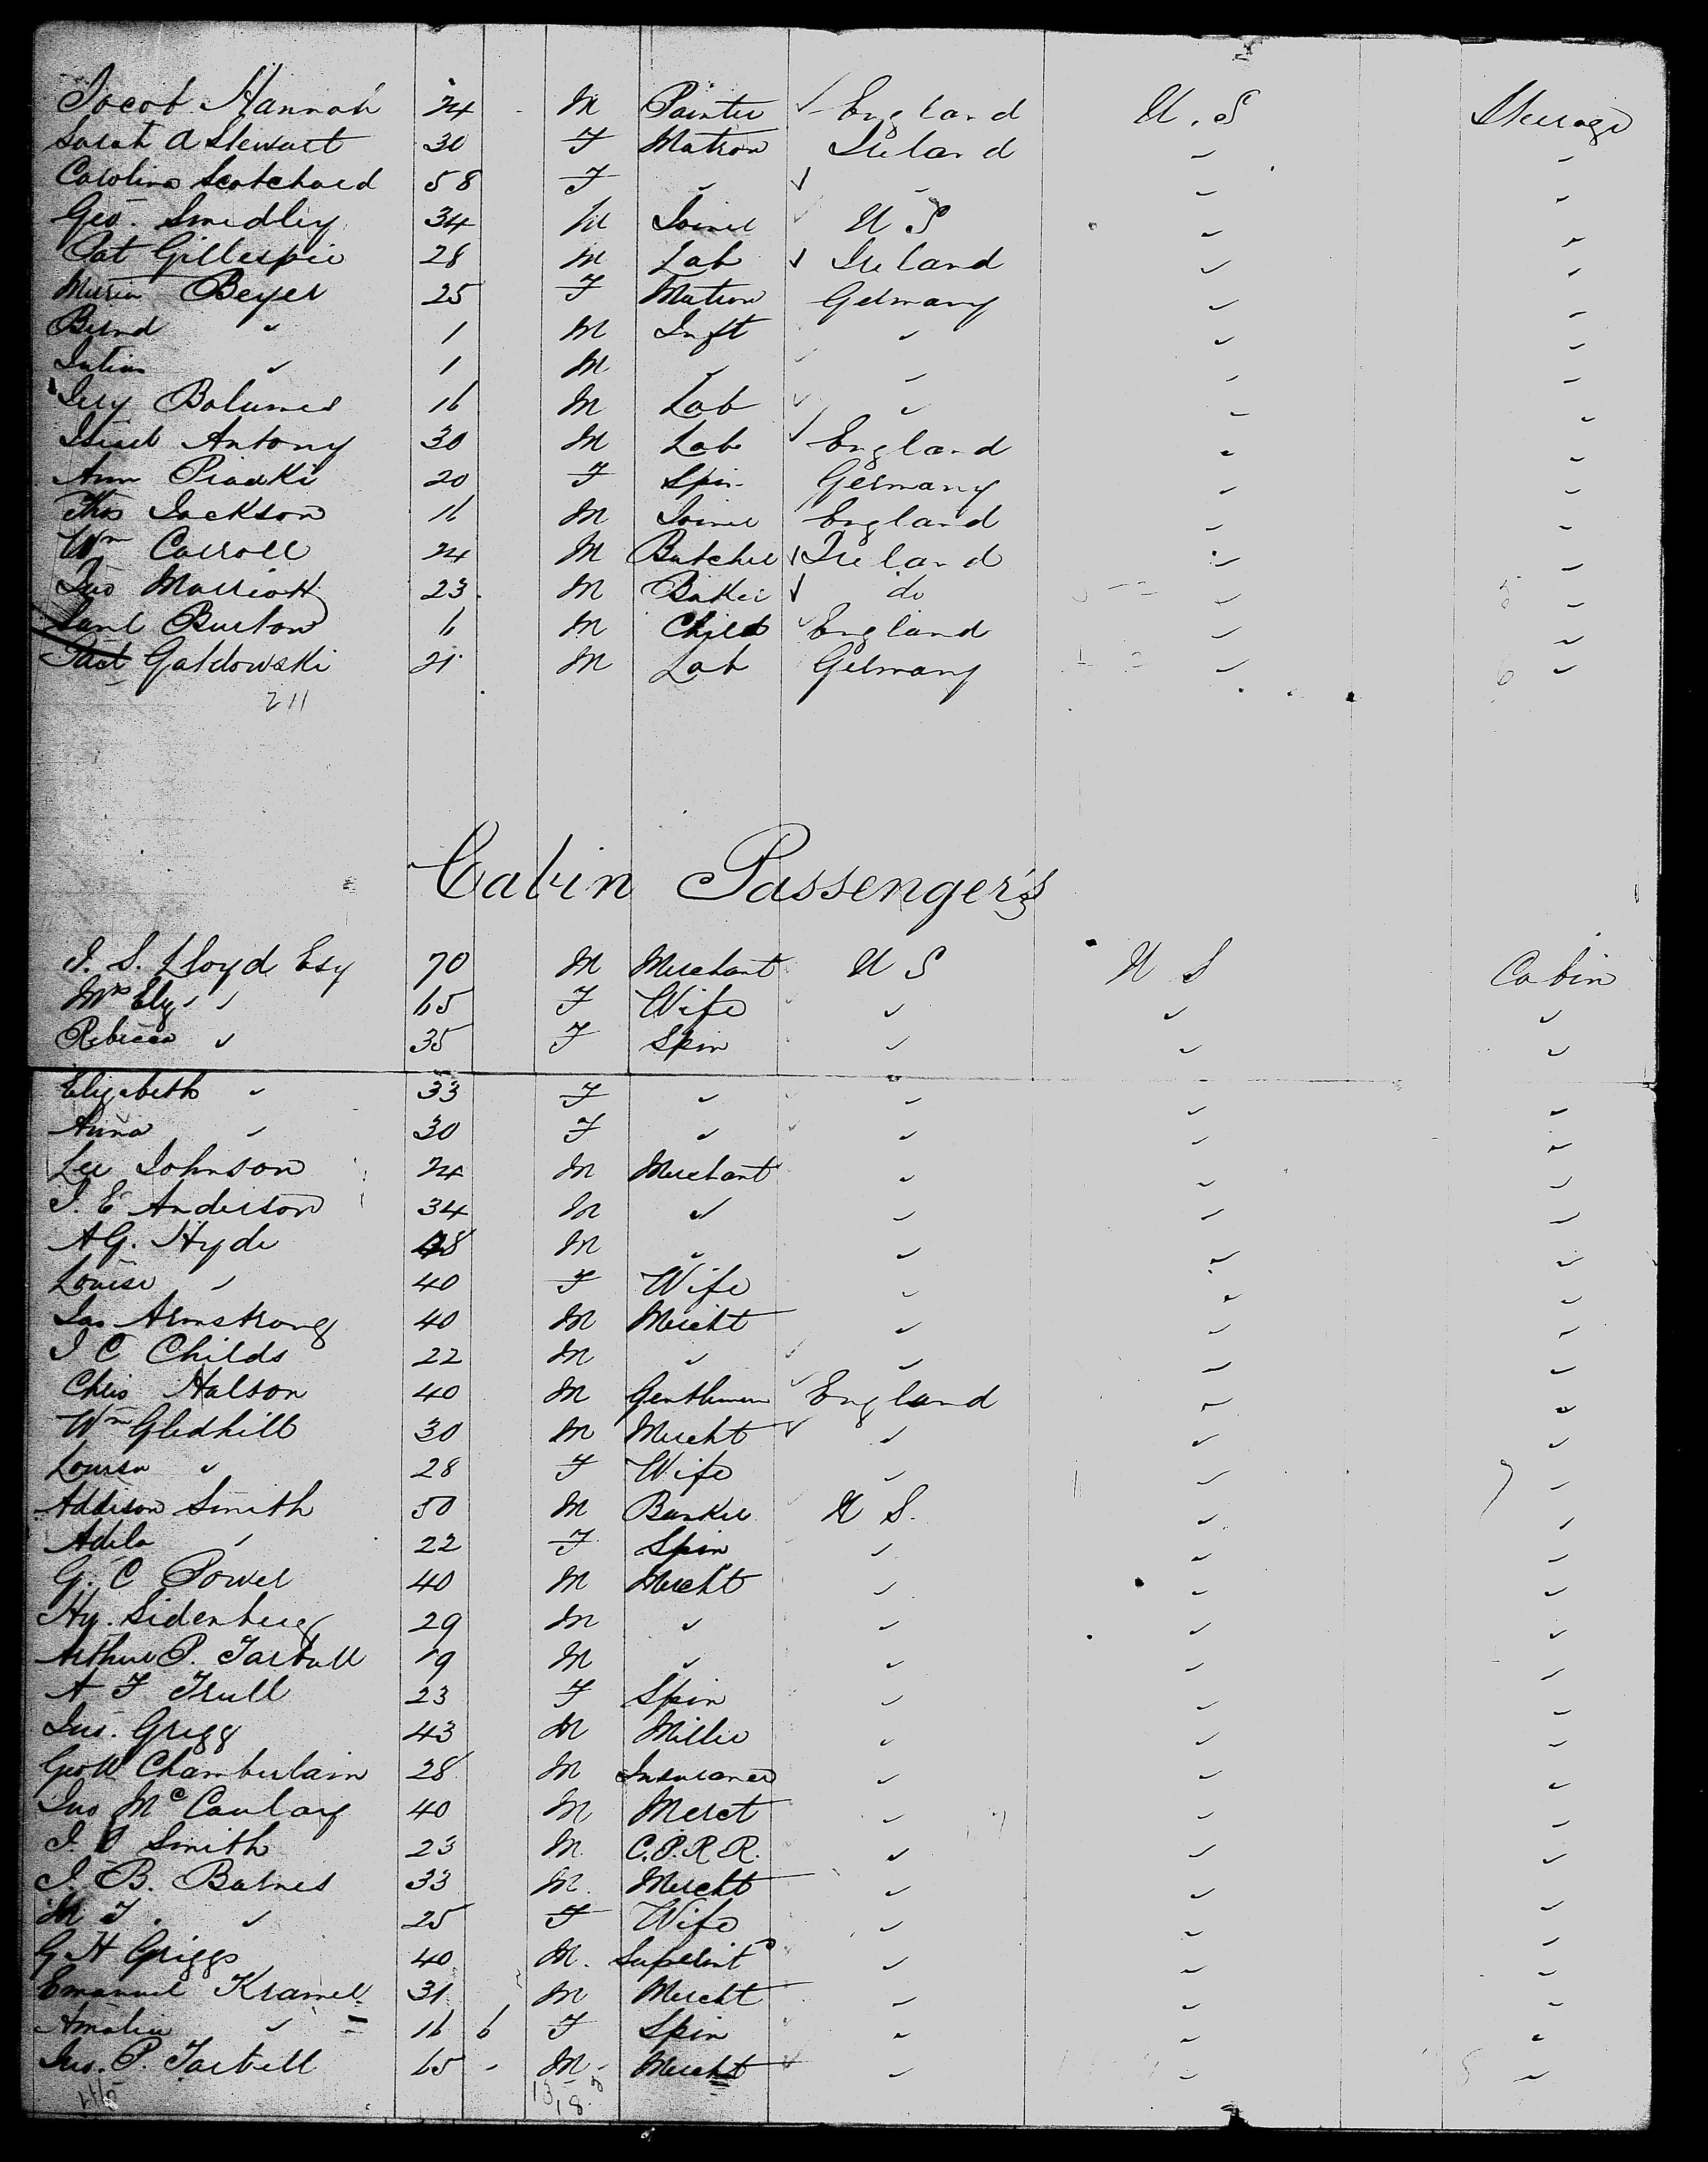 Jacob Hannah 24 M Painter ✓ England U.S Steerage
Sarah A Stewart 30 F Matron Ireland ✓ ✓
Caroline Scotchard 58 F ✓ ✓ ✓ ✓ ✓
Geo. Smedley 34 M Joiner ✓ U S ✓ ✓
Pat Gillespie 28 M Lab ✓ Ireland ✓ ✓
Maria Beyer 25 F Matron Germany ✓ ✓
Bernd ✓ 1 M Inft ✓ ✓ ✓
✓ 1 M ✓ ✓ ✓ ✓ ✓
16 M Lab ✓ ✓ ✓ ✓
Antony 30 M Lab ✓ England ✓ ✓
Ann 20 F Spin Germany ✓ ✓
Thos Jackson 16 M Joiner England ✓ ✓
Wm Carroll 24 M Butcher ✓ Ireland ✓ ✓
Jno Marriott 23 M Baker ✓ do ✓ ✓
Saml Burton 6 M Child ✓ England ✓ ✓
Galdowski 21 M Lab Germany ✓ ✓
211
Cabin Passenger's
J. S. Lloyd Esq 70 M Merchant U S U S Cabin
Mrs Eliz ✓ 65 F Wife ✓ ✓ ✓
Rebecca ✓ 35 F Spin ✓ ✓ ✓
Elizabeth ✓ 33 F ✓ ✓ ✓ ✓
Anna ✓ 30 F ✓ ✓ ✓ ✓
Lee Johnson 24 M Merchant ✓ ✓ ✓
J. E Anderson 34 M ✓ ✓ ✓ ✓
A G. Hyde 48 M ✓ ✓ ✓ ✓
Louise ✓ 40 F Wife ✓ ✓ ✓
Jas Armstrong 40 M Mercht ✓ ✓ ✓
J C Childs 22 M ✓ ✓ ✓ ✓ ✓
Chris Halson 40 M Gentleman ✓ England ✓ ✓
Wm Gledhill 30 M Mercht ✓ ✓ ✓ ✓
Louisa ✓ 28 F Wife ✓ ✓ ✓
Addison Smith 50 M Banker U S. ✓ ✓
Adela ✓ 22 F Spin ✓ ✓ ✓
G. C Power 40 M Mercht ✓ ✓ ✓
Hy. Sidenberg 29 M ✓ ✓ ✓ ✓
Arthur P. Tarbell 19 M ✓ ✓ ✓ ✓
A F Trull 23 F Spin ✓ ✓ ✓
Jno. Grigg 43 M Miller ✓ ✓ ✓
Geo W Chamberlain 28 M Insurance ✓ ✓ ✓
Jno McCaulay 40 M Merct ✓ ✓ ✓
J. Smith 23 M. C.P.R R. ✓ ✓ ✓
J. B. Barnes 33 M. Mercht ✓ ✓ ✓
M F. ✓ 25 F Wife ✓ ✓ ✓
G. H Griggs 40 M. Superint ✓ ✓ ✓
Emanuel Kramer 31 M Mercht ✓ ✓ ✓
Amalia ✓ 16 6 F Spin ✓ ✓ ✓
Jno. P. Tarbell 65 - M - Mercht ✓ ✓ ✓ ✓